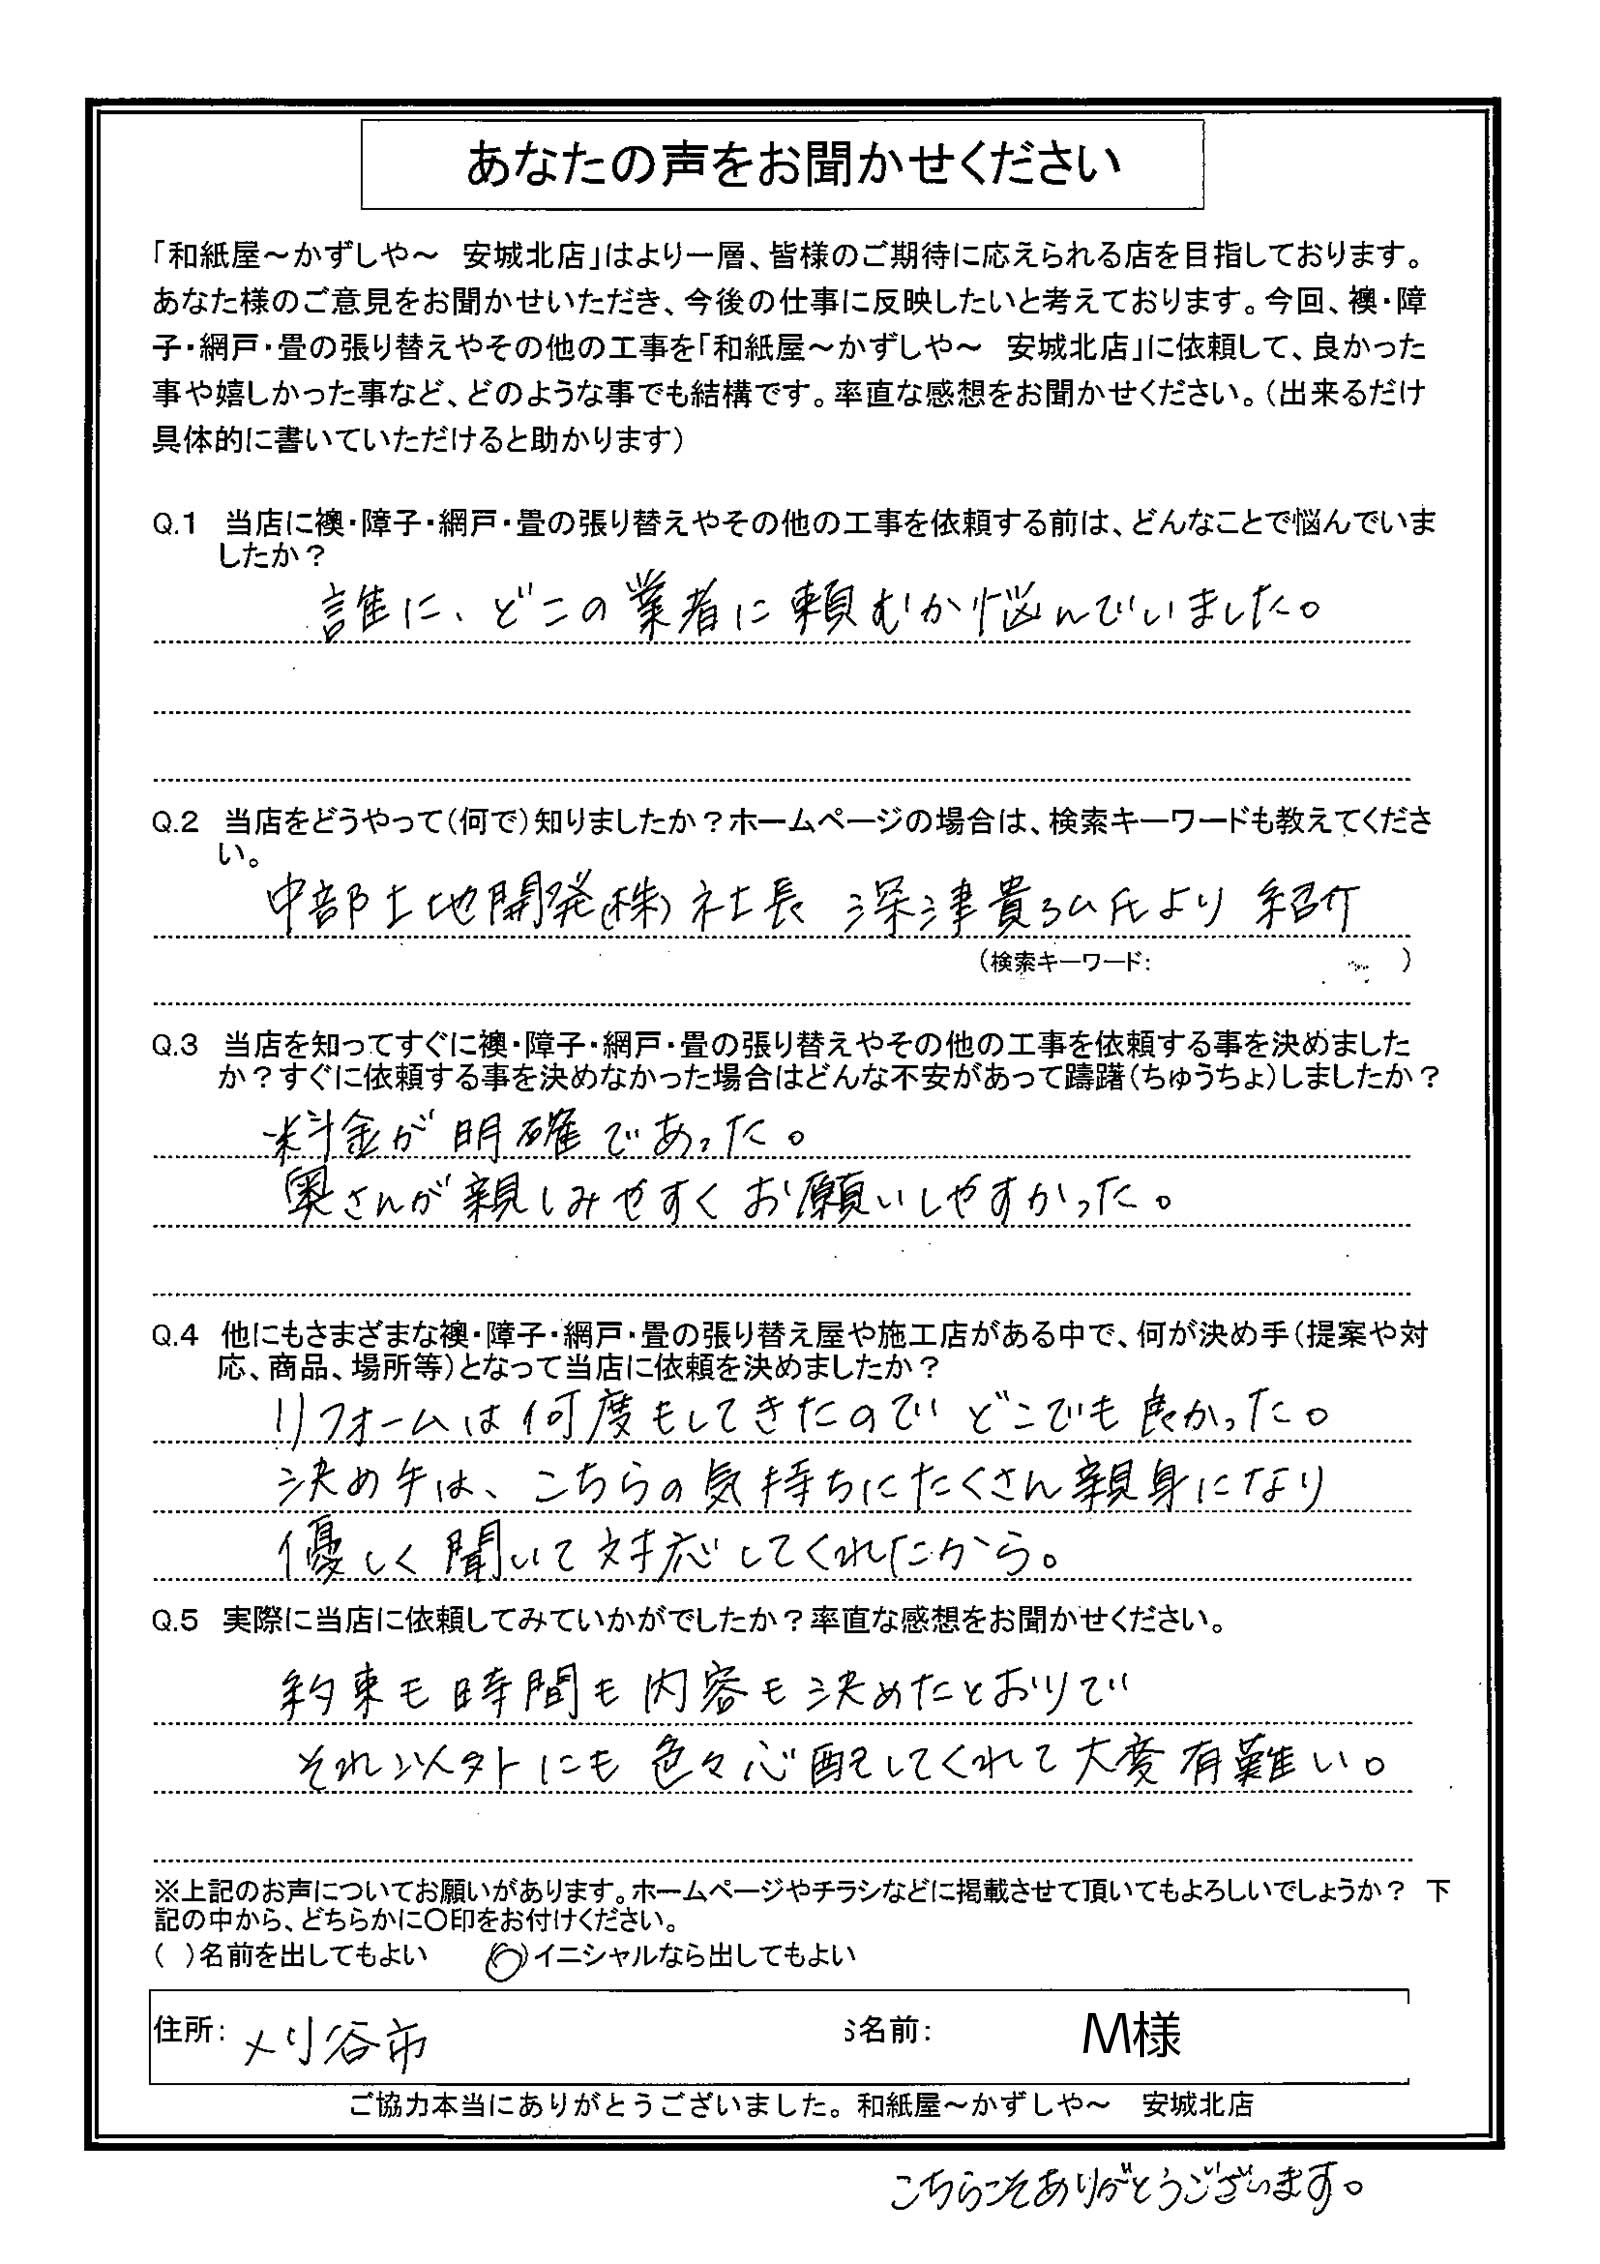 あなたの声をお聞かせください
「和紙屋～かずしや～　安城北店」はより一層、皆様のご期待に応えられる店を目指しております。
あなた様のご意見をお聞かせいただき、今後の仕事に反映したいと考えております。今回、襖・障
子・網戸・畳の張り替えやその他の工事を「和紙屋～かずしや～　安城北店」に依頼して、良かった
事や嬉しかった事など、どのような事でも結構です。率直な感想をお聞かせください。（出来るだけ
具体的に書いていただけると助かります）
Q.1　当店に襖・障子・網戸・畳の張り替えやその他の工事を依頼する前は、どんなことで悩んでいま
したか？
誰に、どこの業者に頼むか悩んでいました。
Q.2　当店をどうやって（何で）知りましたか？ホームページの場合は、検索キーワードも教えてくださ
い。
中部土地開発（株）社長　深津貴弘氏より 紹介
（検索キーワード：　　　　　　　）
Q.3　当店を知ってすぐに襖・障子・網戸・畳の張り替えやその他の工事を依頼する事を決めました
か？すぐに依頼する事を決めなかった場合はどんな不安があって躊躇（ちゅうちょ）しましたか？
料金が明確であった。
奥さんが親しみやすくお願いしやすかった。
Q.4　他にもさまざまな襖・障子・網戸・畳の張り替え屋や施工店がある中で、何が決め手（提案や対
応、商品、場所等）となって当店に依頼を決めましたか？
リフォームは何度もしてきたので どこでも良かった。
決め手は、こちらの気持ちにたくさん親身になり
優しく聞いて対応してくれたから。
Q.5　実際に当店に依頼してみていかがでしたか？率直な感想をお聞かせください。
約束も時間も内容も決めたとおりで
それ以外にも色々心配してくれて大変有難い。
※上記のお声についてお願いがあります。ホームページやチラシなどに掲載させて頂いてもよろしいでしょうか？　下
記の中から、どちらかに〇印をお付けください。
（　）名前を出してもよい　　（○）イニシャルなら出してもよい
住所：刈谷市　　名前：　M様
ご協力本当にありがとうございました。和紙屋～かずしや～　安城北店
こちらこそありがとうございます。